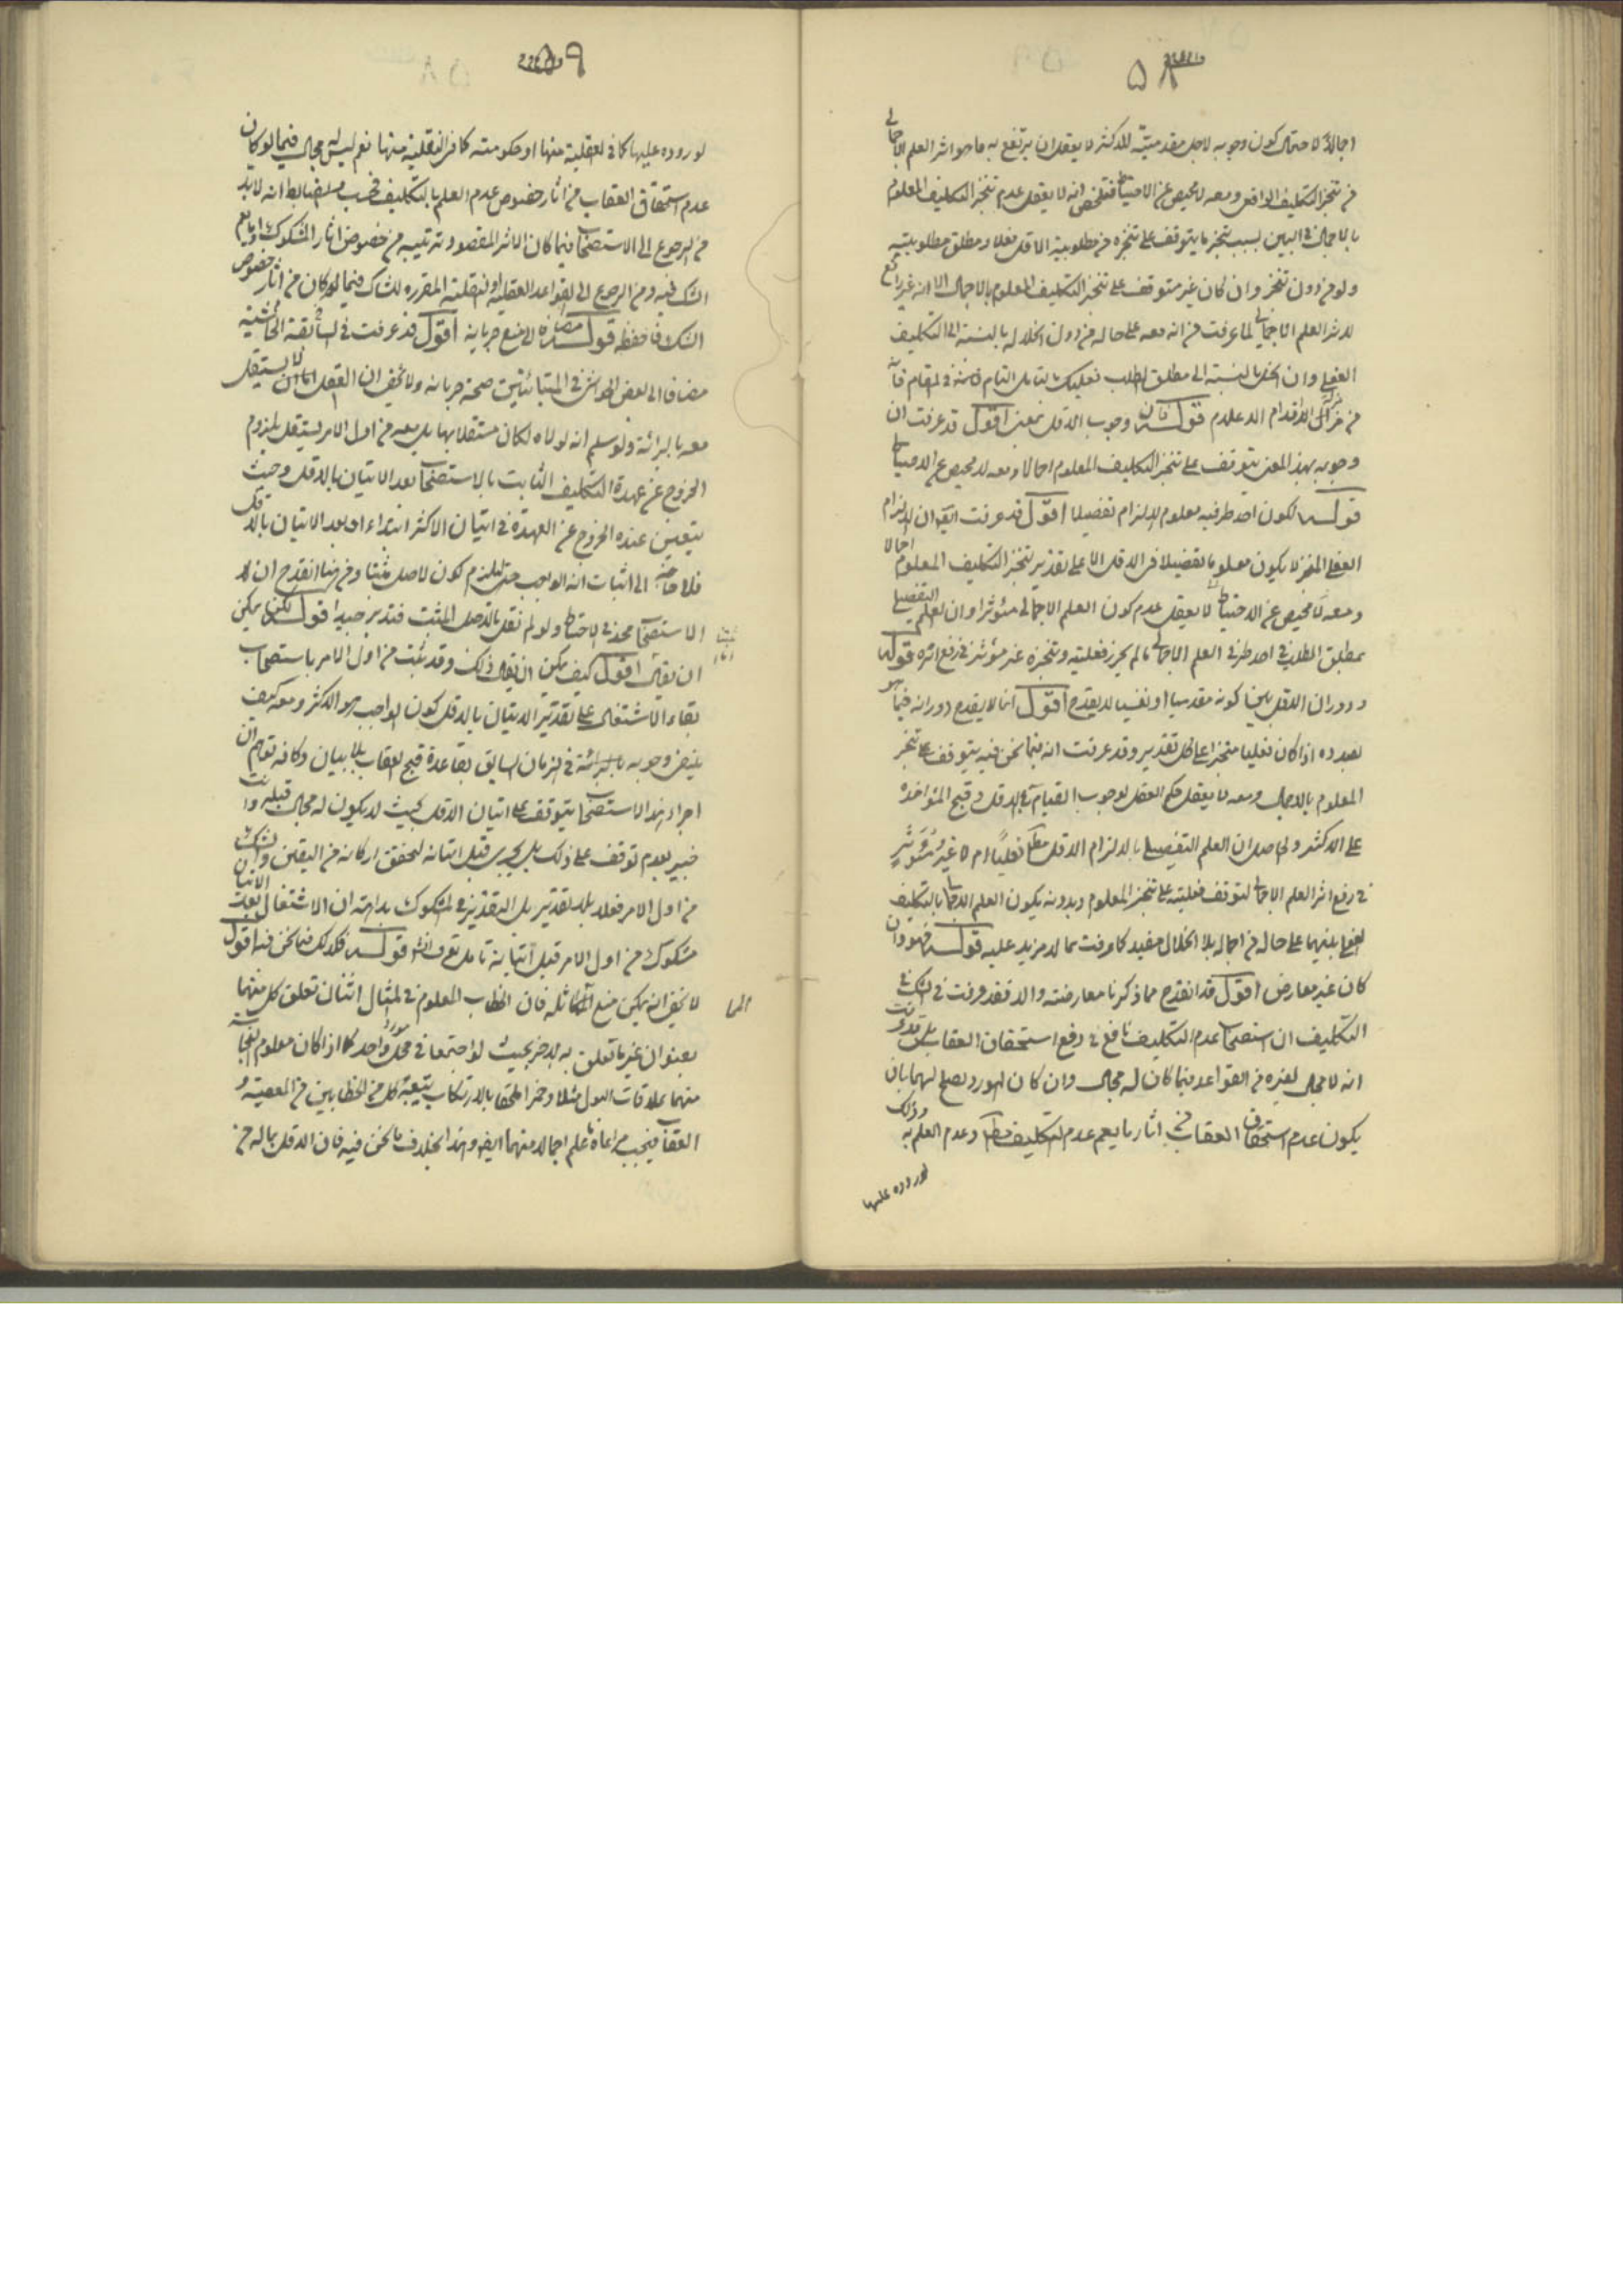 ۵۸
اجمالا لاحتمال كون وجوبه لاجل مقدميته للاكثر لا يعقل ان يرتفع به ما هو اثر العلم الاجمالى
من تنجز التكليف الواقعى ومعه لا محيص عن الاحتياط فتلخص انه لا يعقل عدم تنجز التكليف المعلوم
بالاجمال فى البين بسبب تنجز ما يتوقف على تنجزه من مطلوبية الاقل فعلا ومطلق مطلوبيته
ولو من دون تنجز وان كان غير متوقف على تنجز التكليف المعلوم بالاجمال الا انه غير رافع
لاثر العلم الاجمالى لما عرفت من انه معه على حاله من دون انحلاله بالنسبة الى التكليف
الفعلى وان انحل بالنسبة الى مطلق الطلب فعليك بتأمل التام فى المقام فانه
من مزال الاقدام الاعلام قوله فان وجوب الاقل بمعنى اقول قد عرفت ان
وجوبه بهذا المعنى يتوقف على تنجز التكليف المعلوم اجمالا ومعه لا محيص عن الاحتياط
قوله لكون احد طرفيه معلوم الالزام تفصيلا اقول قد عرفت ايضا ان الالزام
الفعلى المنجز لا يكون معلوما تفصيلا فى الاقل الا على تقدير تنجز التكليف المعلوم اجمالا
ومعه لا محيص عن الاحتياط لا يعقل عدم كون العلم الاجمالى مؤثرا وان العلم التفصيلى
بمطلق الطلب فى احد طرفى العلم الاجمالى ما لم يحرز فعليته وتنجزه غير مؤثر فى رفع اثره قوله
ودوران الالزام كونه مقدميا او نفسيا لا يقدح اقول انما لا يقدح دورانه فيما هو
بصدده اذا كان فعليا منجزا على كل تقدير وقد عرفت انه فيما نحن فيه يتوقف على تنجز
المعلوم بالاجمال ومعه لا يعقل حكم العقل بوجوب القيام بالاقل وقبح المؤاخذة
على الاكثر والحاصل ان العلم التفصيلى بالالزام الاقل مط فعليا ام لا غير مؤثر
فى رفع اثر العلم الاجمالى لتوقف فعليته على تنجز المعلوم وبدونه يكون العلم الاجمالى بالتكليف
الفعلى بينهما على حاله من اجماله بلا انحلال مفيد كما عرفت بما لا مزيد عليه قوله فهو وان
كان غير معارض اقول قد انقدح مما ذكرنا معارضته والا فقد عرفت فى الشك فى
التكليف ان استصحاب عدم التكليف نافع فى دفع استحقاق العقاب بل قد عرفت
انه لا مجال لغيره من القواعد فيما كان له مجال وان كان المورد يصلح لهما بان
يكون عدم استحقاق العقاب من اثار ما يعم عدم التكليف مط وعدم العلم به وذلك
لوروده عليها
۵۹
لوروده عليها كما فى العقلية منها او حكومته كما فى النقلية منها نعم ليس له مجال فيما لو كان
عدم استحقاق العقاب من اثار خصوص عدم العلم بالتكليف فحسب والضابط انه لا بد
من الرجوع الى الاستصحاب فيما كان الاثر المقصود ترتيبه من خصوص اثار المشكوك او ما يعم
الشك فيه ومن الرجوع الى القواعد العقلية او النقلية المقرره للشاك فيما لو كان من اثار خصوص
الشك فاحفظه قوله مضافا الى منع جريانه اقول قد عرفت فى السابقة الحاشية
مضافا الى بعض الحواشى فى المتباينين صحة جريانه ولا يخفى ان العقل لا يستقل
معه بالبرائة ولو سلم انه لولاه لكان مستقلا بها بل معه من اول الامر يستقل بلزوم
الخروج عن عهدة التكليف الثابت بالاستصحاب بعد الاتيان بالاقل وحيث
يتعين عنده الخروج عن العهدة فى اتيان الاكثر ابتداء او بعد الاتيان بالاقل
فلا حاجة الى اثبات انه الواجب حتى يلزم كون الاصل مثبتا ومن هنا انقدح ان
الاستصحاب مجد فى الاحتياط ولو لم نقل بالاصل المثبت فتدبر جيدا قوله لكن يمكن
ان يقال اقول كيف يمكن ان يقال ذلك وقد ثبت من اول الامر باستصحاب
بقاء الاشتغال على تقدير الاتيان بالاقل كون الواجب هو الاكثر ومعه كيف
ينفى وجوبه بالبرائة فى الزمان السابق بقاعدة قبح العقاب بلا بيان وكانه توهم ان
اجراء هذا الاستصحاب يتوقف على اتيان الاقل بحيث لا يكون له مجال قبله وانت
خبير بعدم توقف على ذلك بل يجرى قبل اتيانه لتحقق اركانه من اليقين والشك
من اول الامر فعلا بلا تقدير بل التقدير فى المشكوك بداهة ان الاشتغال بعد الاتيان
مشكوك من اول الامر قبل اتيانه تأمل تعرف قوله فكذلك فيما نحن فيه اقول
لا يخفى انه يمكن منع المماثلة فان الخطاب المعلوم فى المثال اثنان تعلق كل منهما
بعنوان غير ما تعلق به الاخر بحيث لو اجتمعا فى محل واحد كما اذا كان معلوم النجاسة
منهما بملاقات البول مثلا وخمرا لحقا بالارتكاب يتبعه كل من الخطابين من المعصية و
العقاب فيجب مراعاة ما علم اجمالا منهما ايضا وهذا بخلاف ما نحن فيه فان الاقل بما له من